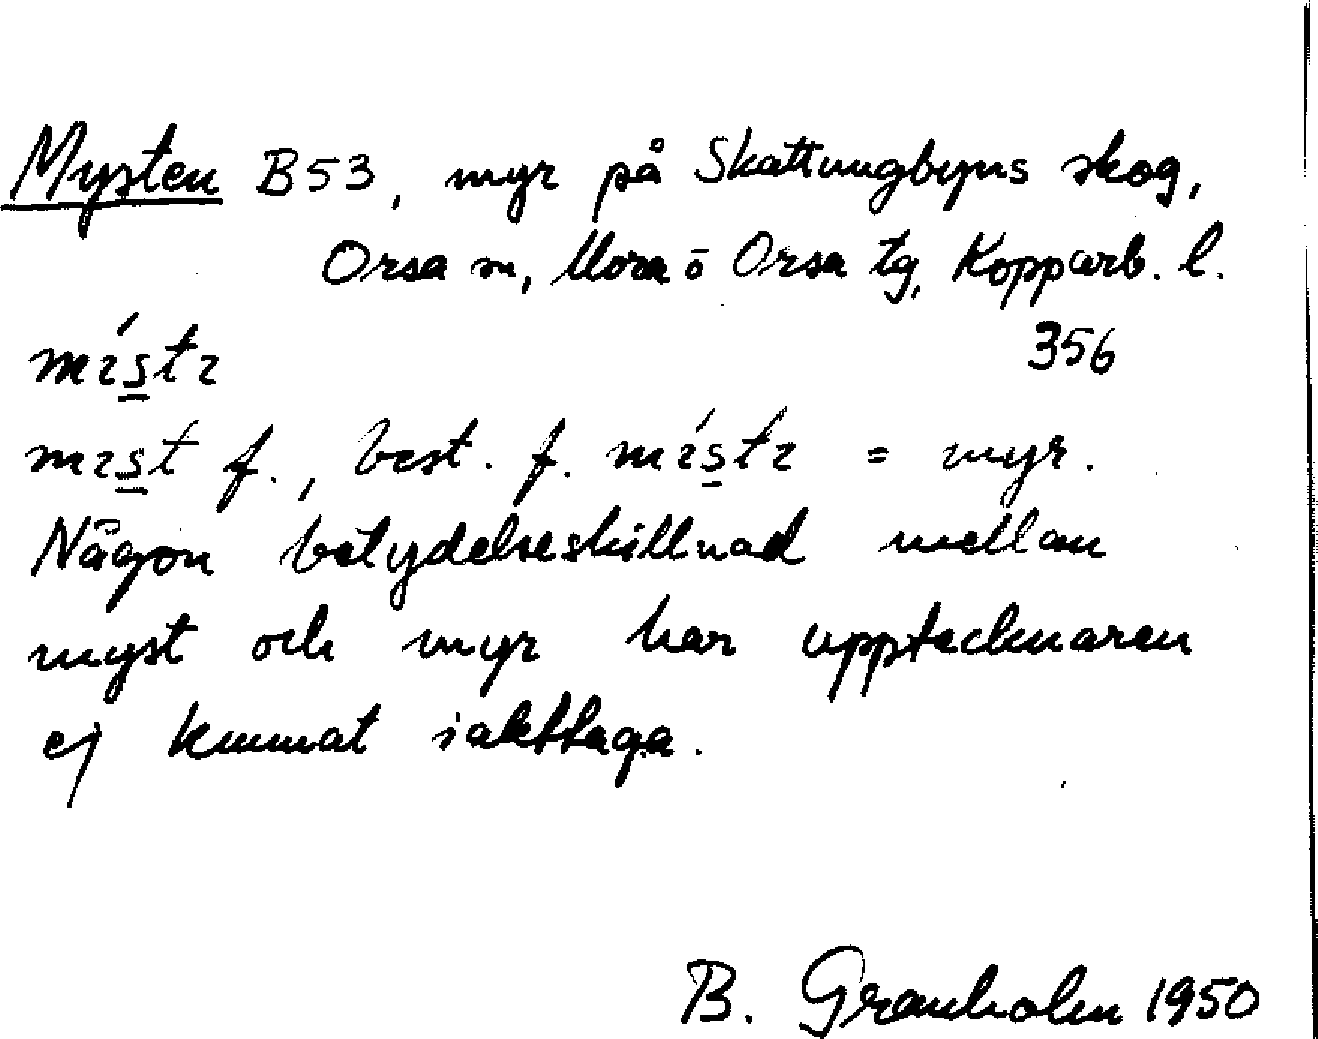 Mysten B53, myr på Skattungbyns skog,
Orsa sn, Mora o Orsa tg, Kopparb. l.
mɩ́s̲tɩ 356
mɩs̲t f., best. f. mɩ́s̲tɩ = myr.
Någon betydelseskillnad mellan
myst och myr har upptecknaren
ej kunnat iakttaga.
B. Granholm 1950